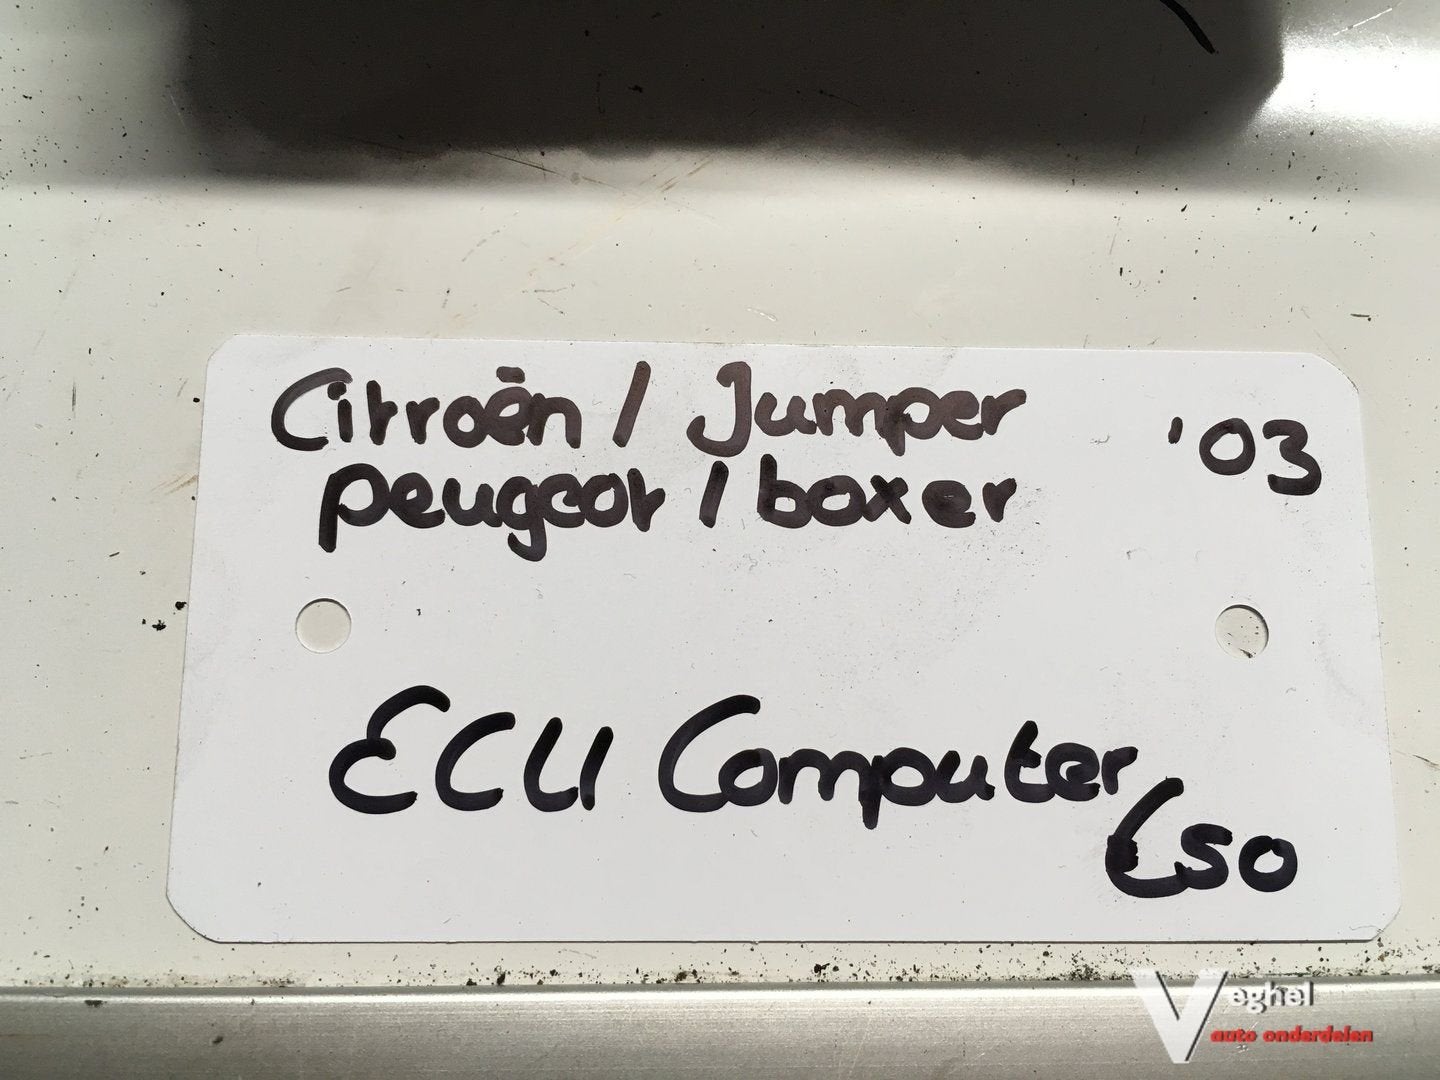 Citroën / Jumper '03
peugeot / boxer
ECU Computer
€50
Veghel
auto onderdelen